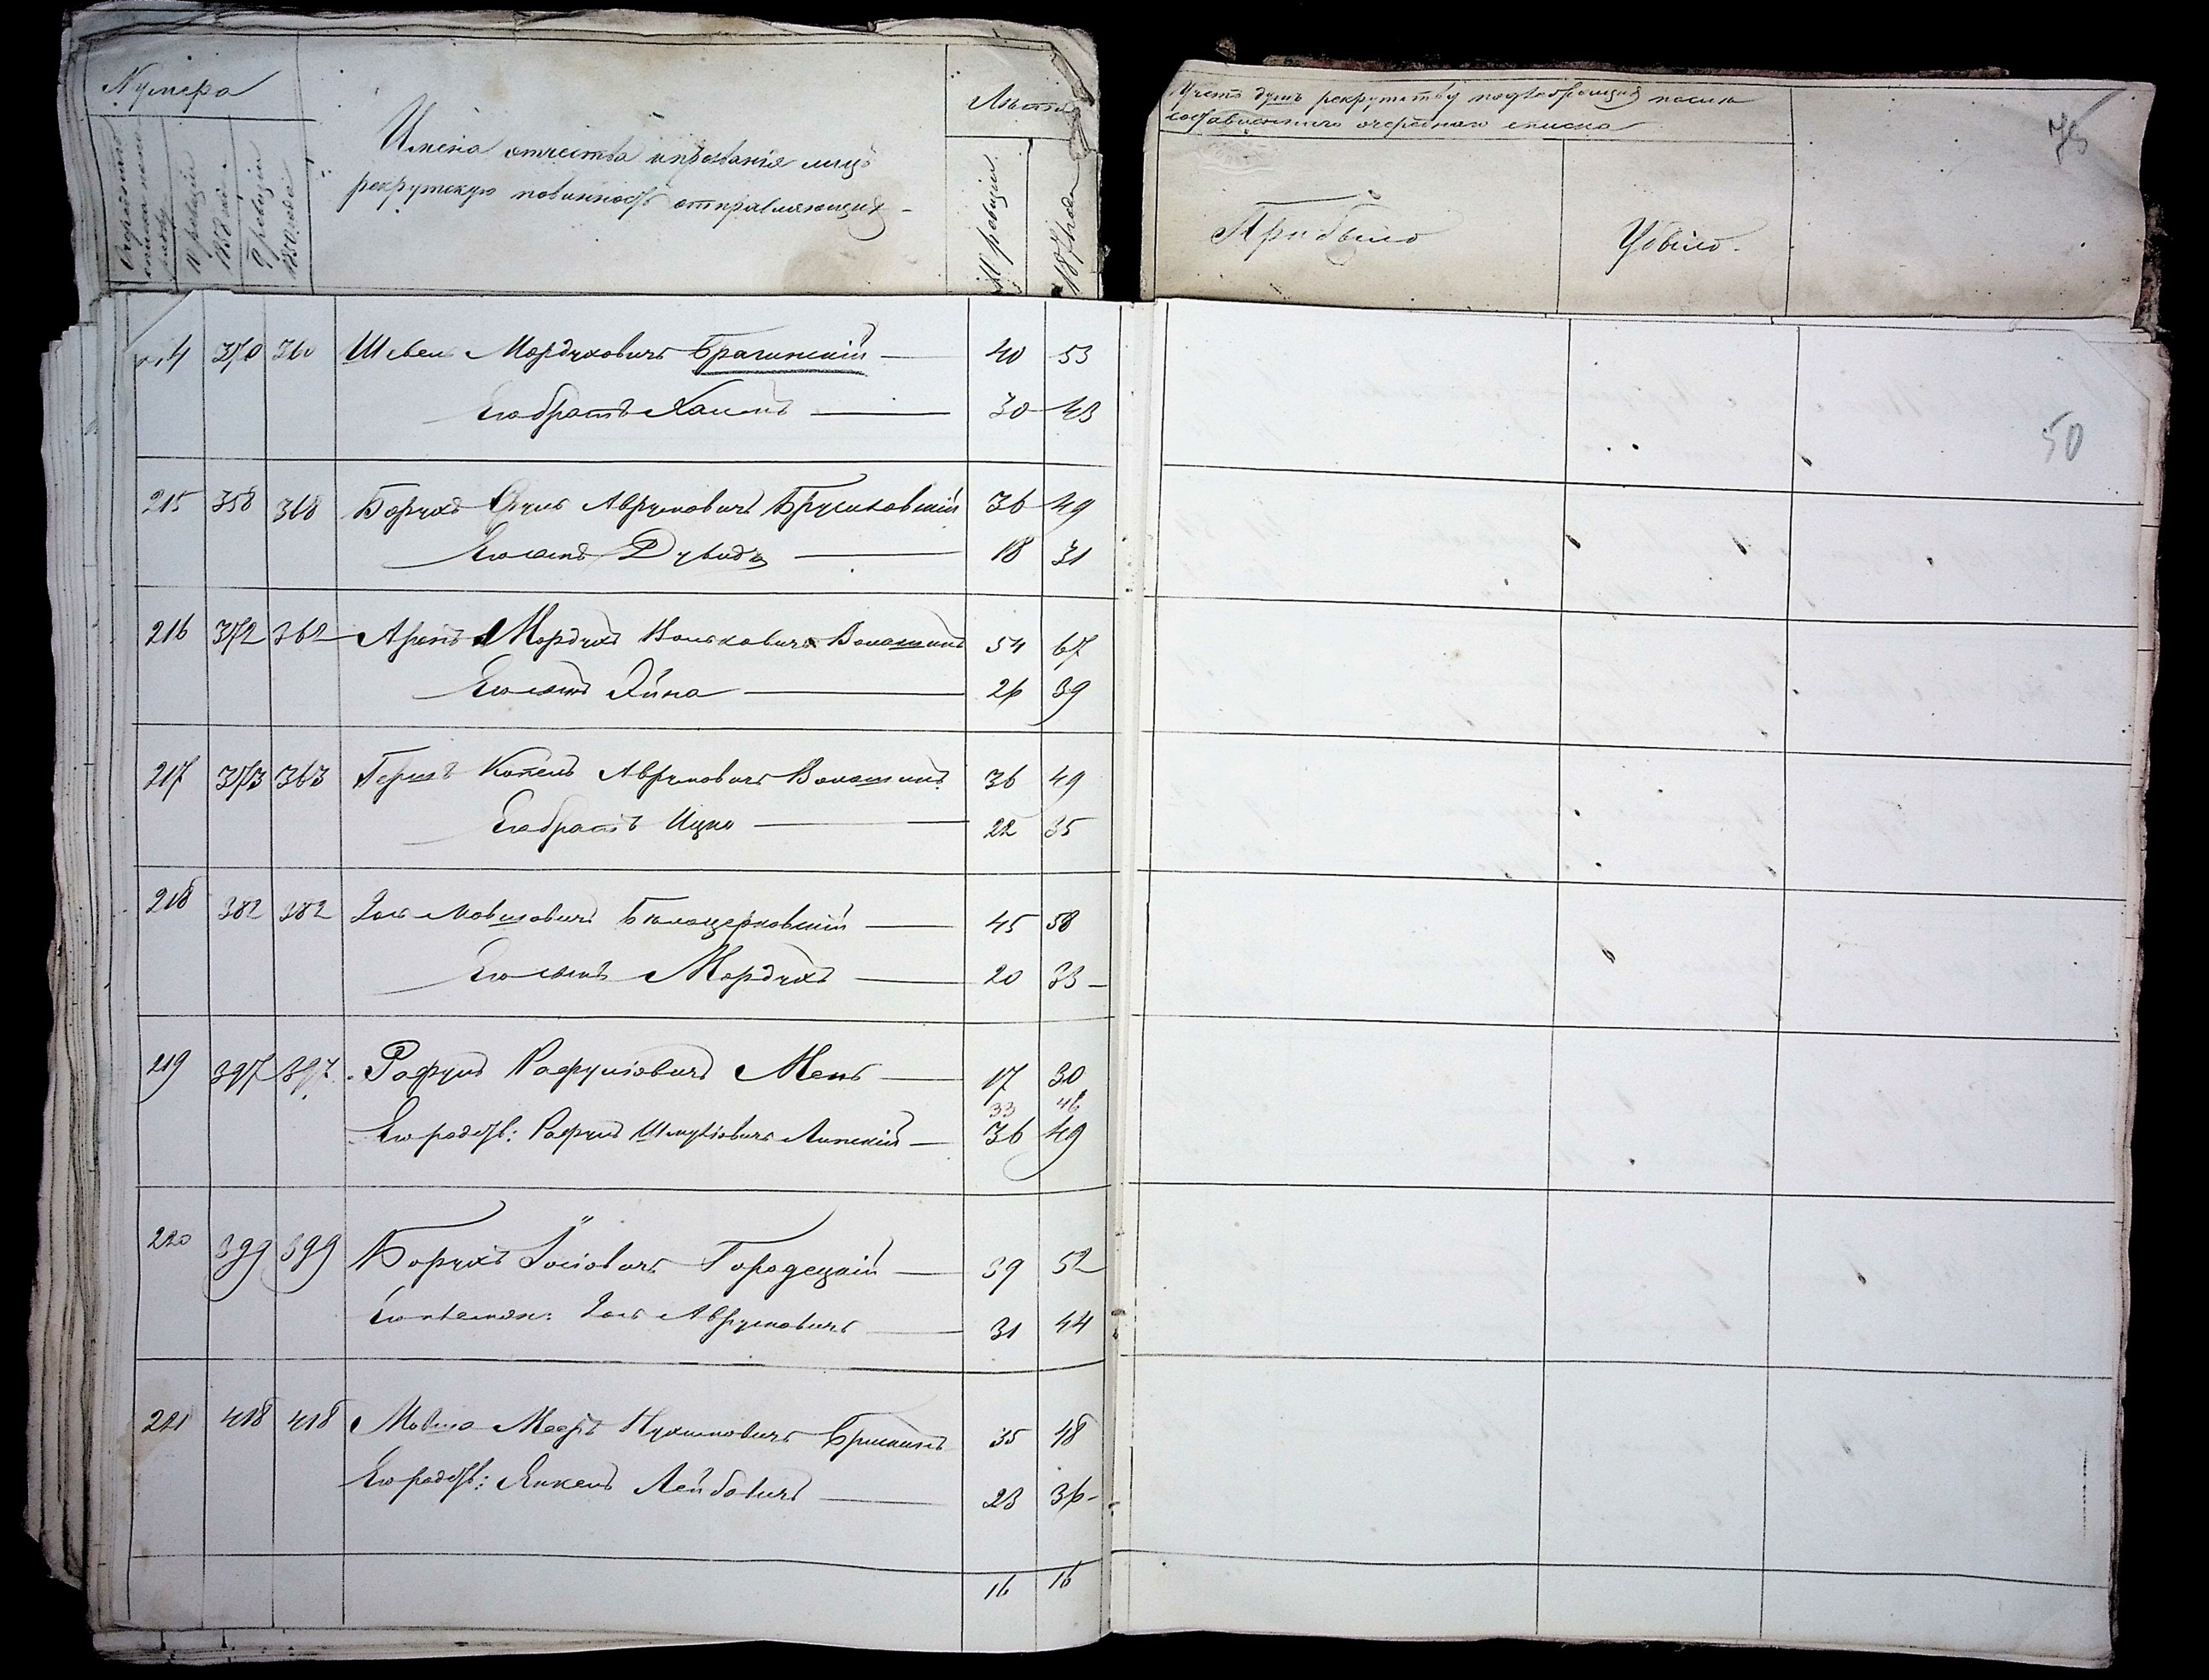 Нумера
Имена отчества и прозвания лицъ
рекрутскую повинность отправляющихъ
Лѣта
По ревизіи
1871 года
Очереднаго
По ревизіи
1858 года
По ревизіи
1850 года
Учетъ душъ рекрутству подлежащихъ послѣ
составленнаго очереднаго списка
Прибыло
Убыло
75
50
370 360 Мордуховичъ Брагинскій 40 53
Его братъ Хаимъ 30 43
215 358 368 Борухъ Аврумовичъ Брусиловскій 36 49
Его сынъ Дувидъ 18 31
216 372 362 Аронъ Мордухъ Волошинъ 54 67
Его сынъ Эйна 26 39
217 373 363 Гершъ Копель Аврумовичъ Волошинъ 36 49
Его братъ Ицко 22 35
218 382 382 Іось Мовшовичъ Бѣлоцерковскій 45 58
Его сынъ Мордухъ 20 33
219 397 397 Рафулъ Рафуловичъ Мень 17 30
33 46
Его родств: Рафулъ Шмулiовичъ Липскій 36 49
220 399 399 Борухъ Іосiовичъ Городецкій 39 52
Его племян: Іось Аврумовичъ 31 44
221 418 418 Мовша Мееръ Нухимовичъ 35 48
Его родств: Янкель Лейбовичъ 23 36
16 16